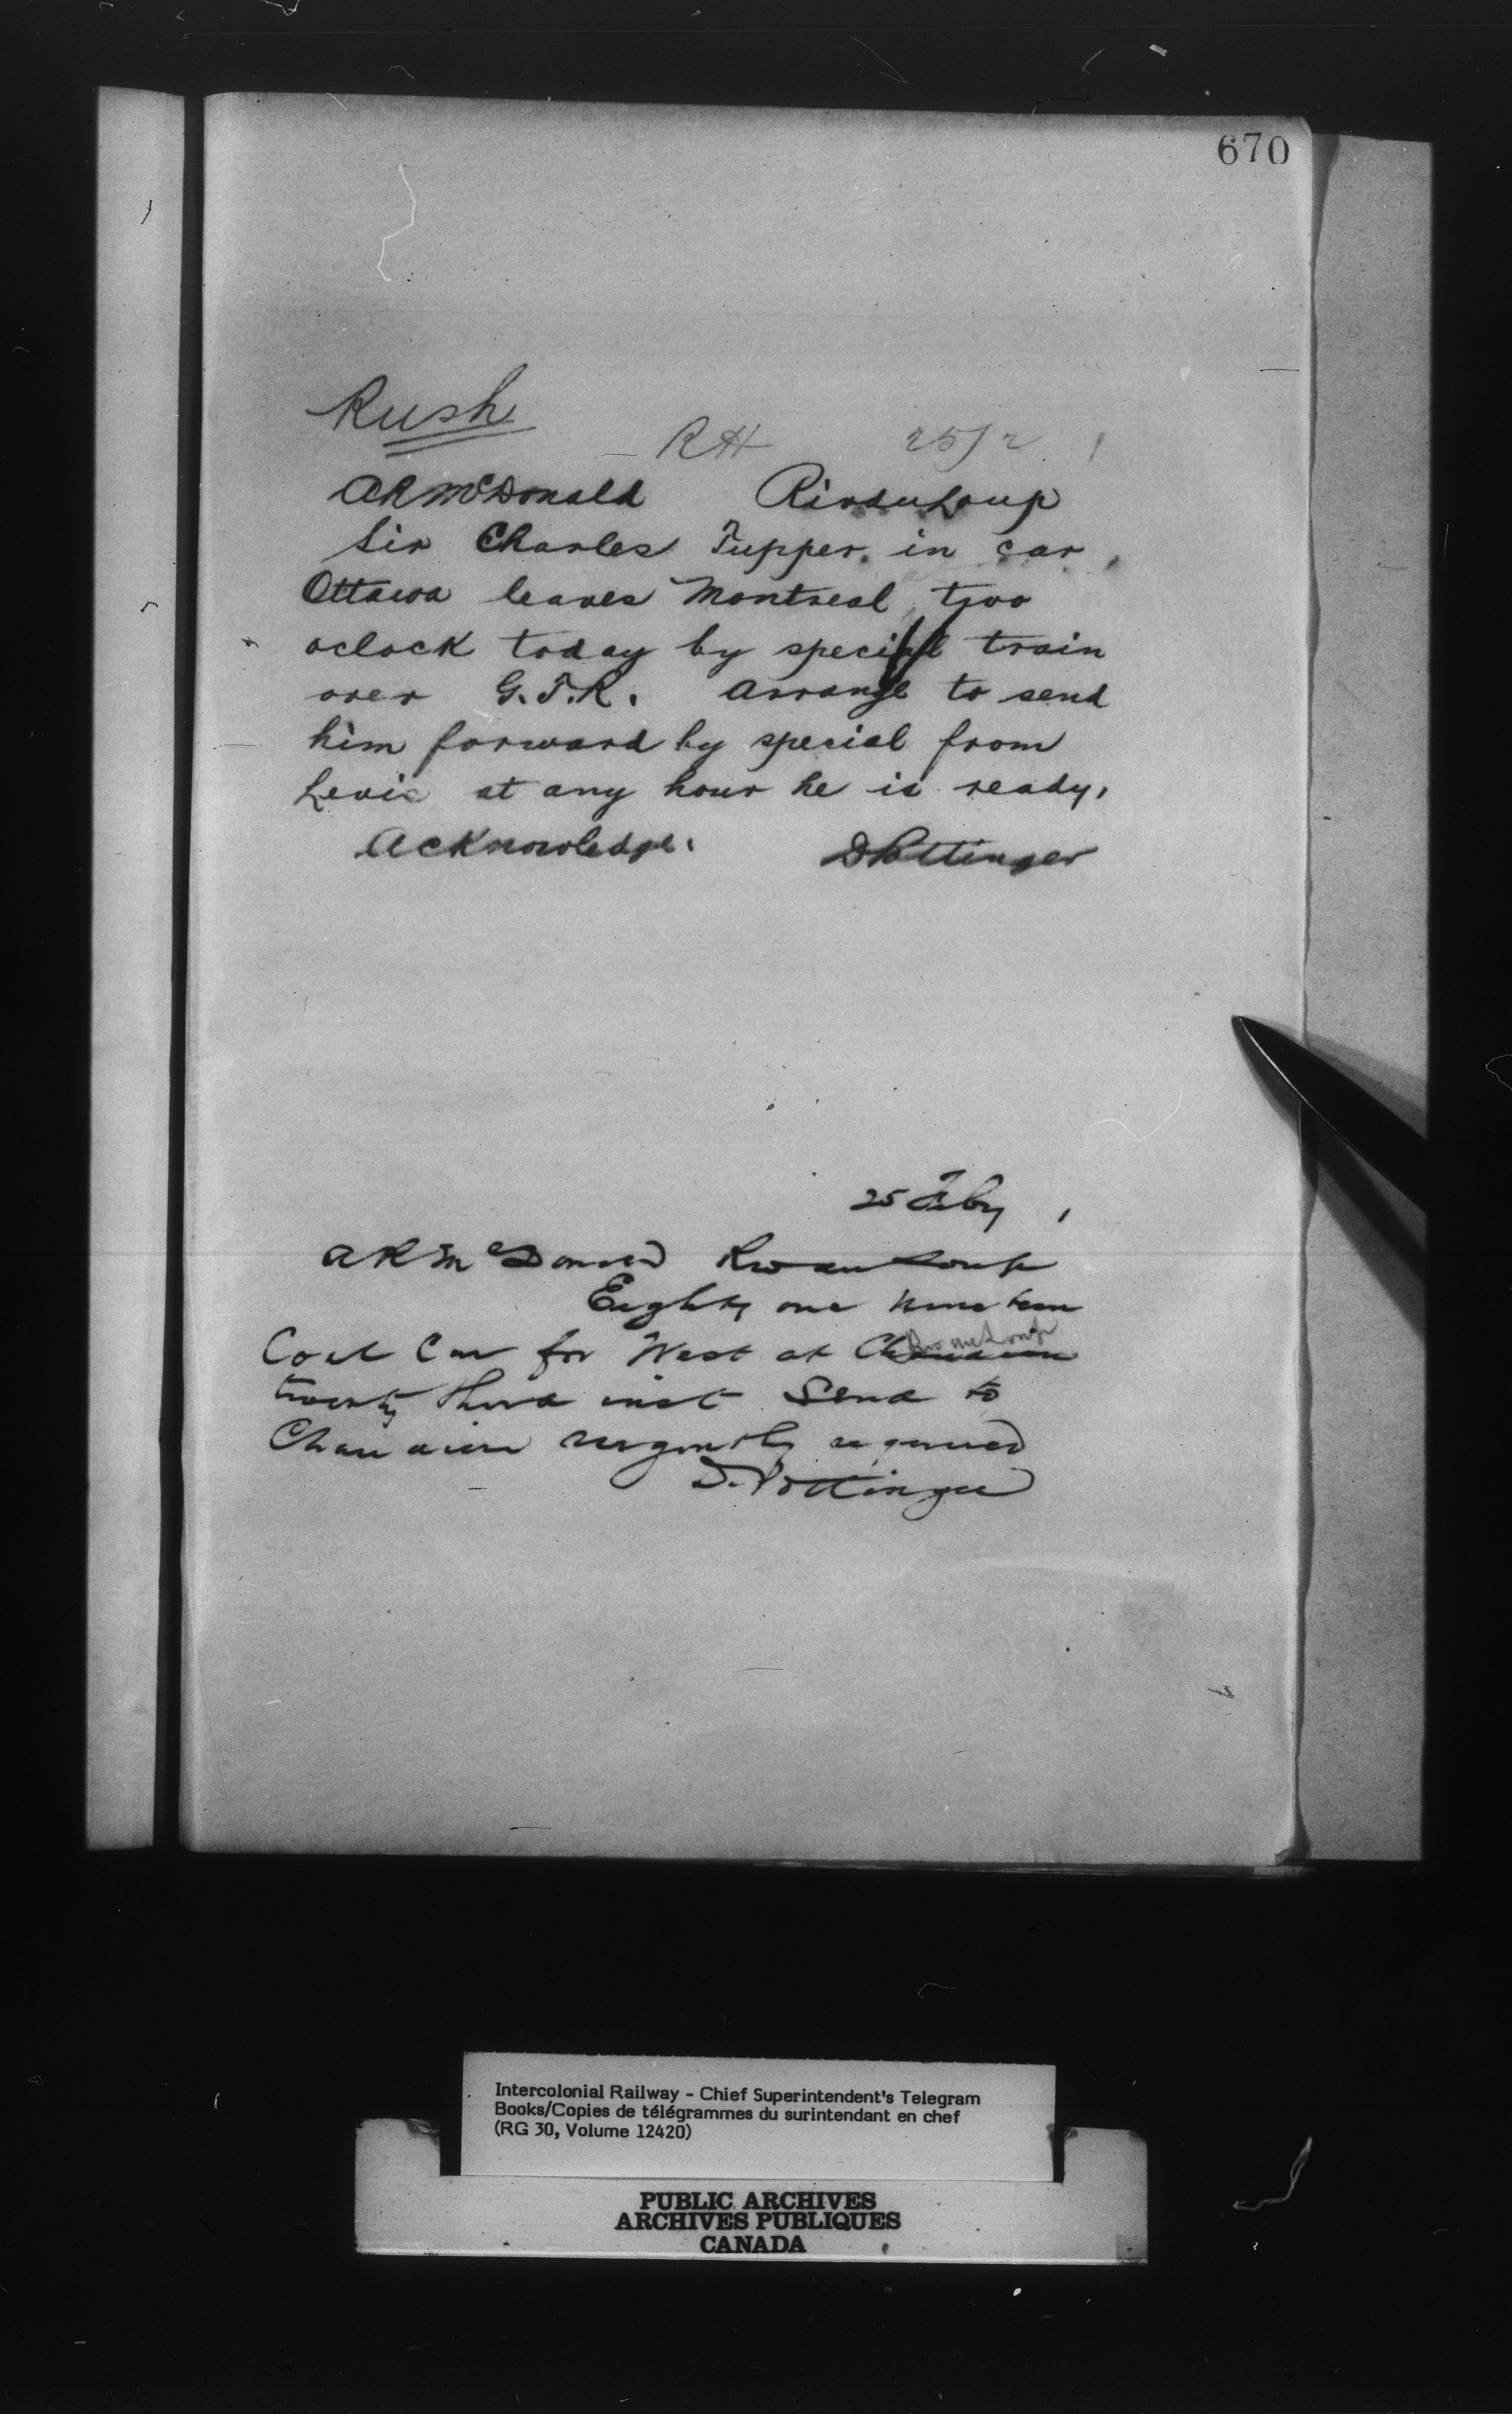 670
Rush
RH 25/2
ARMcDonald RivduLoup
Sir Charles Tupper in car
Ottawa leaves Montreal two
oclock today by special train
over G.T.R. Arrange to send
him forward by special from
Levis at any hour he is ready.
Acknowledge. DPottinger
25 Feby
ARMcDonald RivduLoup
Eighty one nineteen
RivduLoup
Coal Car for West at Chaudiere
twenty third inst Send to
Chaudiere urgently required
D. Pottinger
Intercolonial Railway - Chief Superintendent's Telegram
Books/Copies de télégrammes du surintendant en chef
(RG 30, Volume 12420)
PUBLIC ARCHIVES
ARCHIVES PUBLIQUES
CANADA